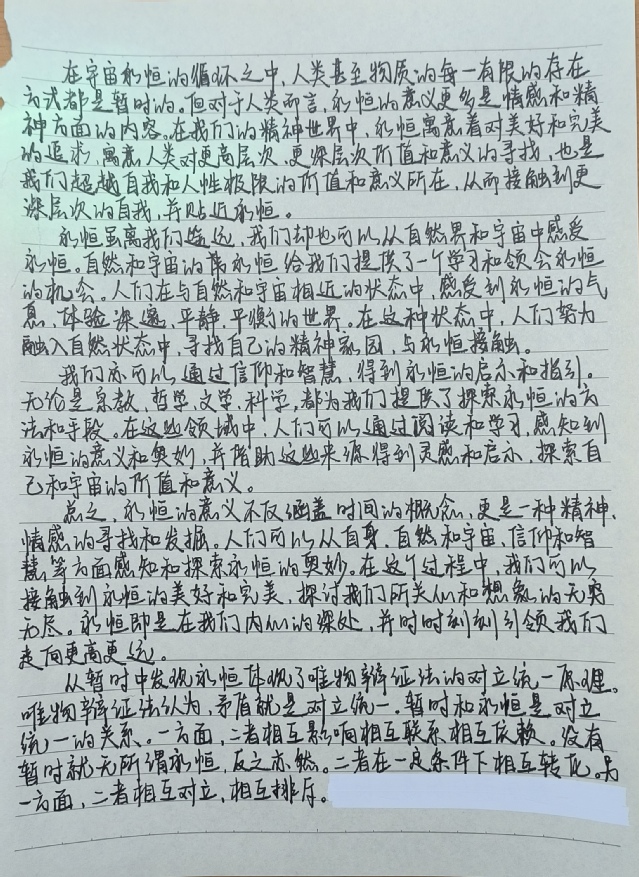 在宇宙永恒的循环之中,人类甚至物质的每一有限的存在
方式都是暂时的。但对于人类而言,永恒的意义更多是情感和精
神方面的内容。在我们的精神世界中,永恒寓意着对美好和完美
的追求,寓意人类对更高层次、更深层次价值和意义的寻找,也是
我们超越自我和人性极限的价值和意义所在,从而接触到更
深层次的自我,并贴近永恒。
永恒虽离我们遥远,我们却也可以从自然界和宇宙中感受
永恒。自然和宇宙的永恒给我们提供了一个学习和领会永恒
的机会。人们在与自然和宇宙相近的状态中,感受到永恒的气
息,体验深邃、平静、平衡的世界。在这种状态中,人们努力
融入自然状态中,寻找自己的精神家园,与永恒接触。
我们亦可以通过信仰和智慧,得到永恒的启示和指引。
无论是宗教、哲学、文学、科学,都为我们提供了探索永恒的方
法和手段。在这些领域中,人们可以通过阅读和学习,感知到
永恒的意义和奥妙,并借助这些来源得到灵感和启示,探索自
己和宇宙的价值和意义。
总之,永恒的意义不仅涵盖时间的概念,更是一种精神、
情感的寻找和发掘。人们可以从自身、自然和宇宙、信仰和智
慧等方面感知和探索永恒的奥妙。在这个过程中,我们可以
接触到永恒的美好和完美,探讨我们所关心和想象的无穷
无尽。永恒即是在我们内心的深处,并时时刻刻引领我们
走向更高更远。
从暂时中发现永恒体现了唯物辩证法的对立统一原理。
唯物辩证法认为,矛盾就是对立统一。暂时和永恒是对立
统一的关系。一方面,二者相互影响相互联系相互依赖。没有
暂时就无所谓永恒,反之亦然。二者在一定条件下相互转化。另
一方面,二者相互对立,相互排斥。